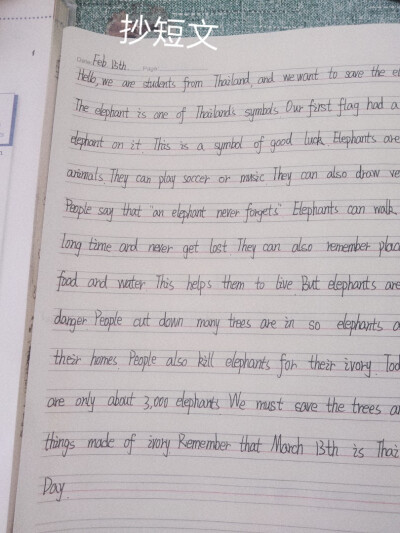 抄短文
Date Feb 13th Page
Hello, we are students from Thailand, and we want to save the el
The elephant is one of Thailand's symbols Our first flag had a
elephant on it This is a symbol of good luck Elephants are
animals They can play soccer or music They can also draw ve
People say that "an elephant never forgets" Elephants can walk
long time and never get lost They can also remember plac
food and water This helps them to live But elephants are
danger People cut down many trees are in so elephants a
their homes People also kill elephants for their ivory Tod
are only about 3,000 elephants We must save the trees a
things made of ivory Remember that March 13th is Thai
Day